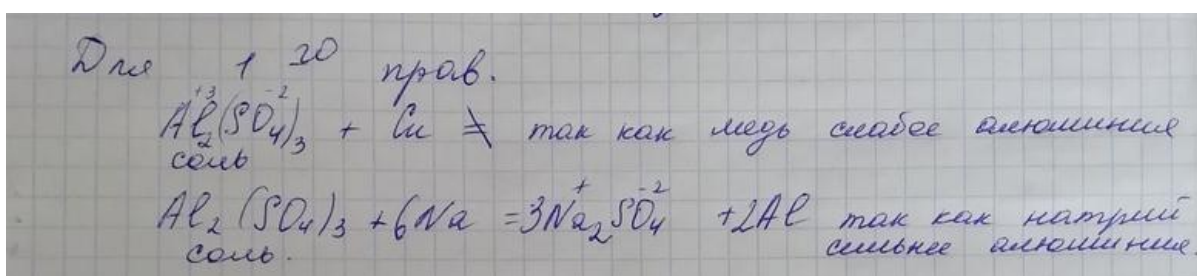 Для 1 го прав.
Al₂⁺³(SO₄)₃⁻² + Cu ≠ так как медь слабее алюминия
соль
Al₂(SO₄)₃ + 6Na = 3Na₂⁺SO₄⁻² + 2Al так как натрий
соль. сильнее алюминия.